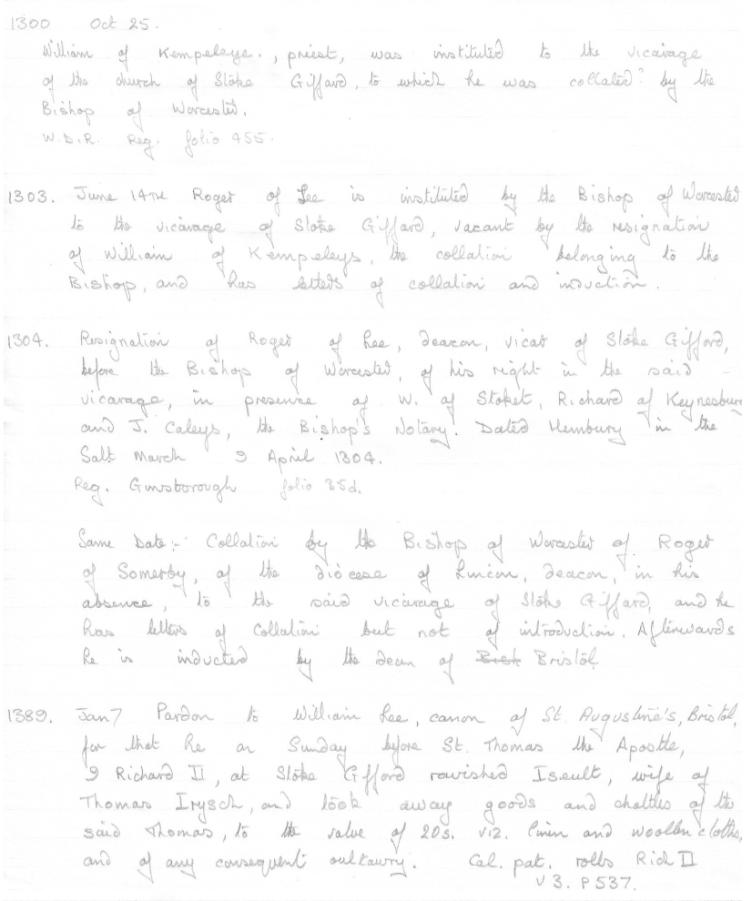 1300 Oct 25.
William of Kempeleye., priest, was instituted to the vicarage
of the church of Stoke Giffard, to which he was collated? by the
Bishop of Worcester.
W.D.R. Reg. folio 455.
1303. June 14TH Roger of Lee is instituted by the Bishop of Worcester
to the vicarage of Stoke Giffard, vacant by the resignation
of William of Kempeleys, the collation belonging to the
Bishop, and has letters of collation and induction.
1304. Resignation of Roger of Lee, deacon, vicar of Stoke Gifford,
before the Bishop of Worcester, of his right in the said
vicarage, in presence of W. of Stoket, Richard of Keynesbury
and J. Caleys, the Bishop's Notary. Dated Hembury in the
Salt March 9 April 1304.
Reg. Ginsborough folio 35d.
Same Date:- Collation by the Bishop of Worcester of Roger
of Somerby, of the diocese of Lincon, deacon, in his
absence, to the said vicarage of Stoke Giffard, and he
has letters of Collation but not of introduction. Afterwards
he is inducted by the dean of Bristol
1389. Jan 7 Pardon to William Lee, canon of St. Augustine's, Bristol,
for that he on Sunday before St. Thomas the Apostle,
9 Richard II, at Stoke Gifford ravished Iseult, wife of
Thomas Irysch, and took away goods and chattles of the
said Thomas, to the value of 20s. viz. linen and woollen cloths,
and of any consequent outlawry. Cal. pat. rolls Rich II
V 3. P 537.